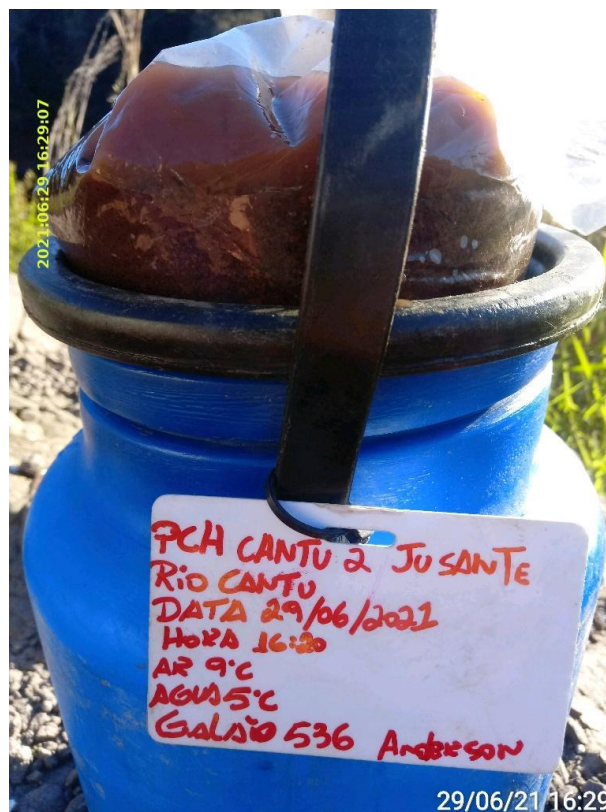 2021:06:29 16:29:07
PCH CANTU 2 JUSANTE
RIO CANTU
DATA 29/06/2021
HORA 16:20
AR 9°C
AGUA 5°C
GALAÕ 536 Anderson
29/06/21 16:29